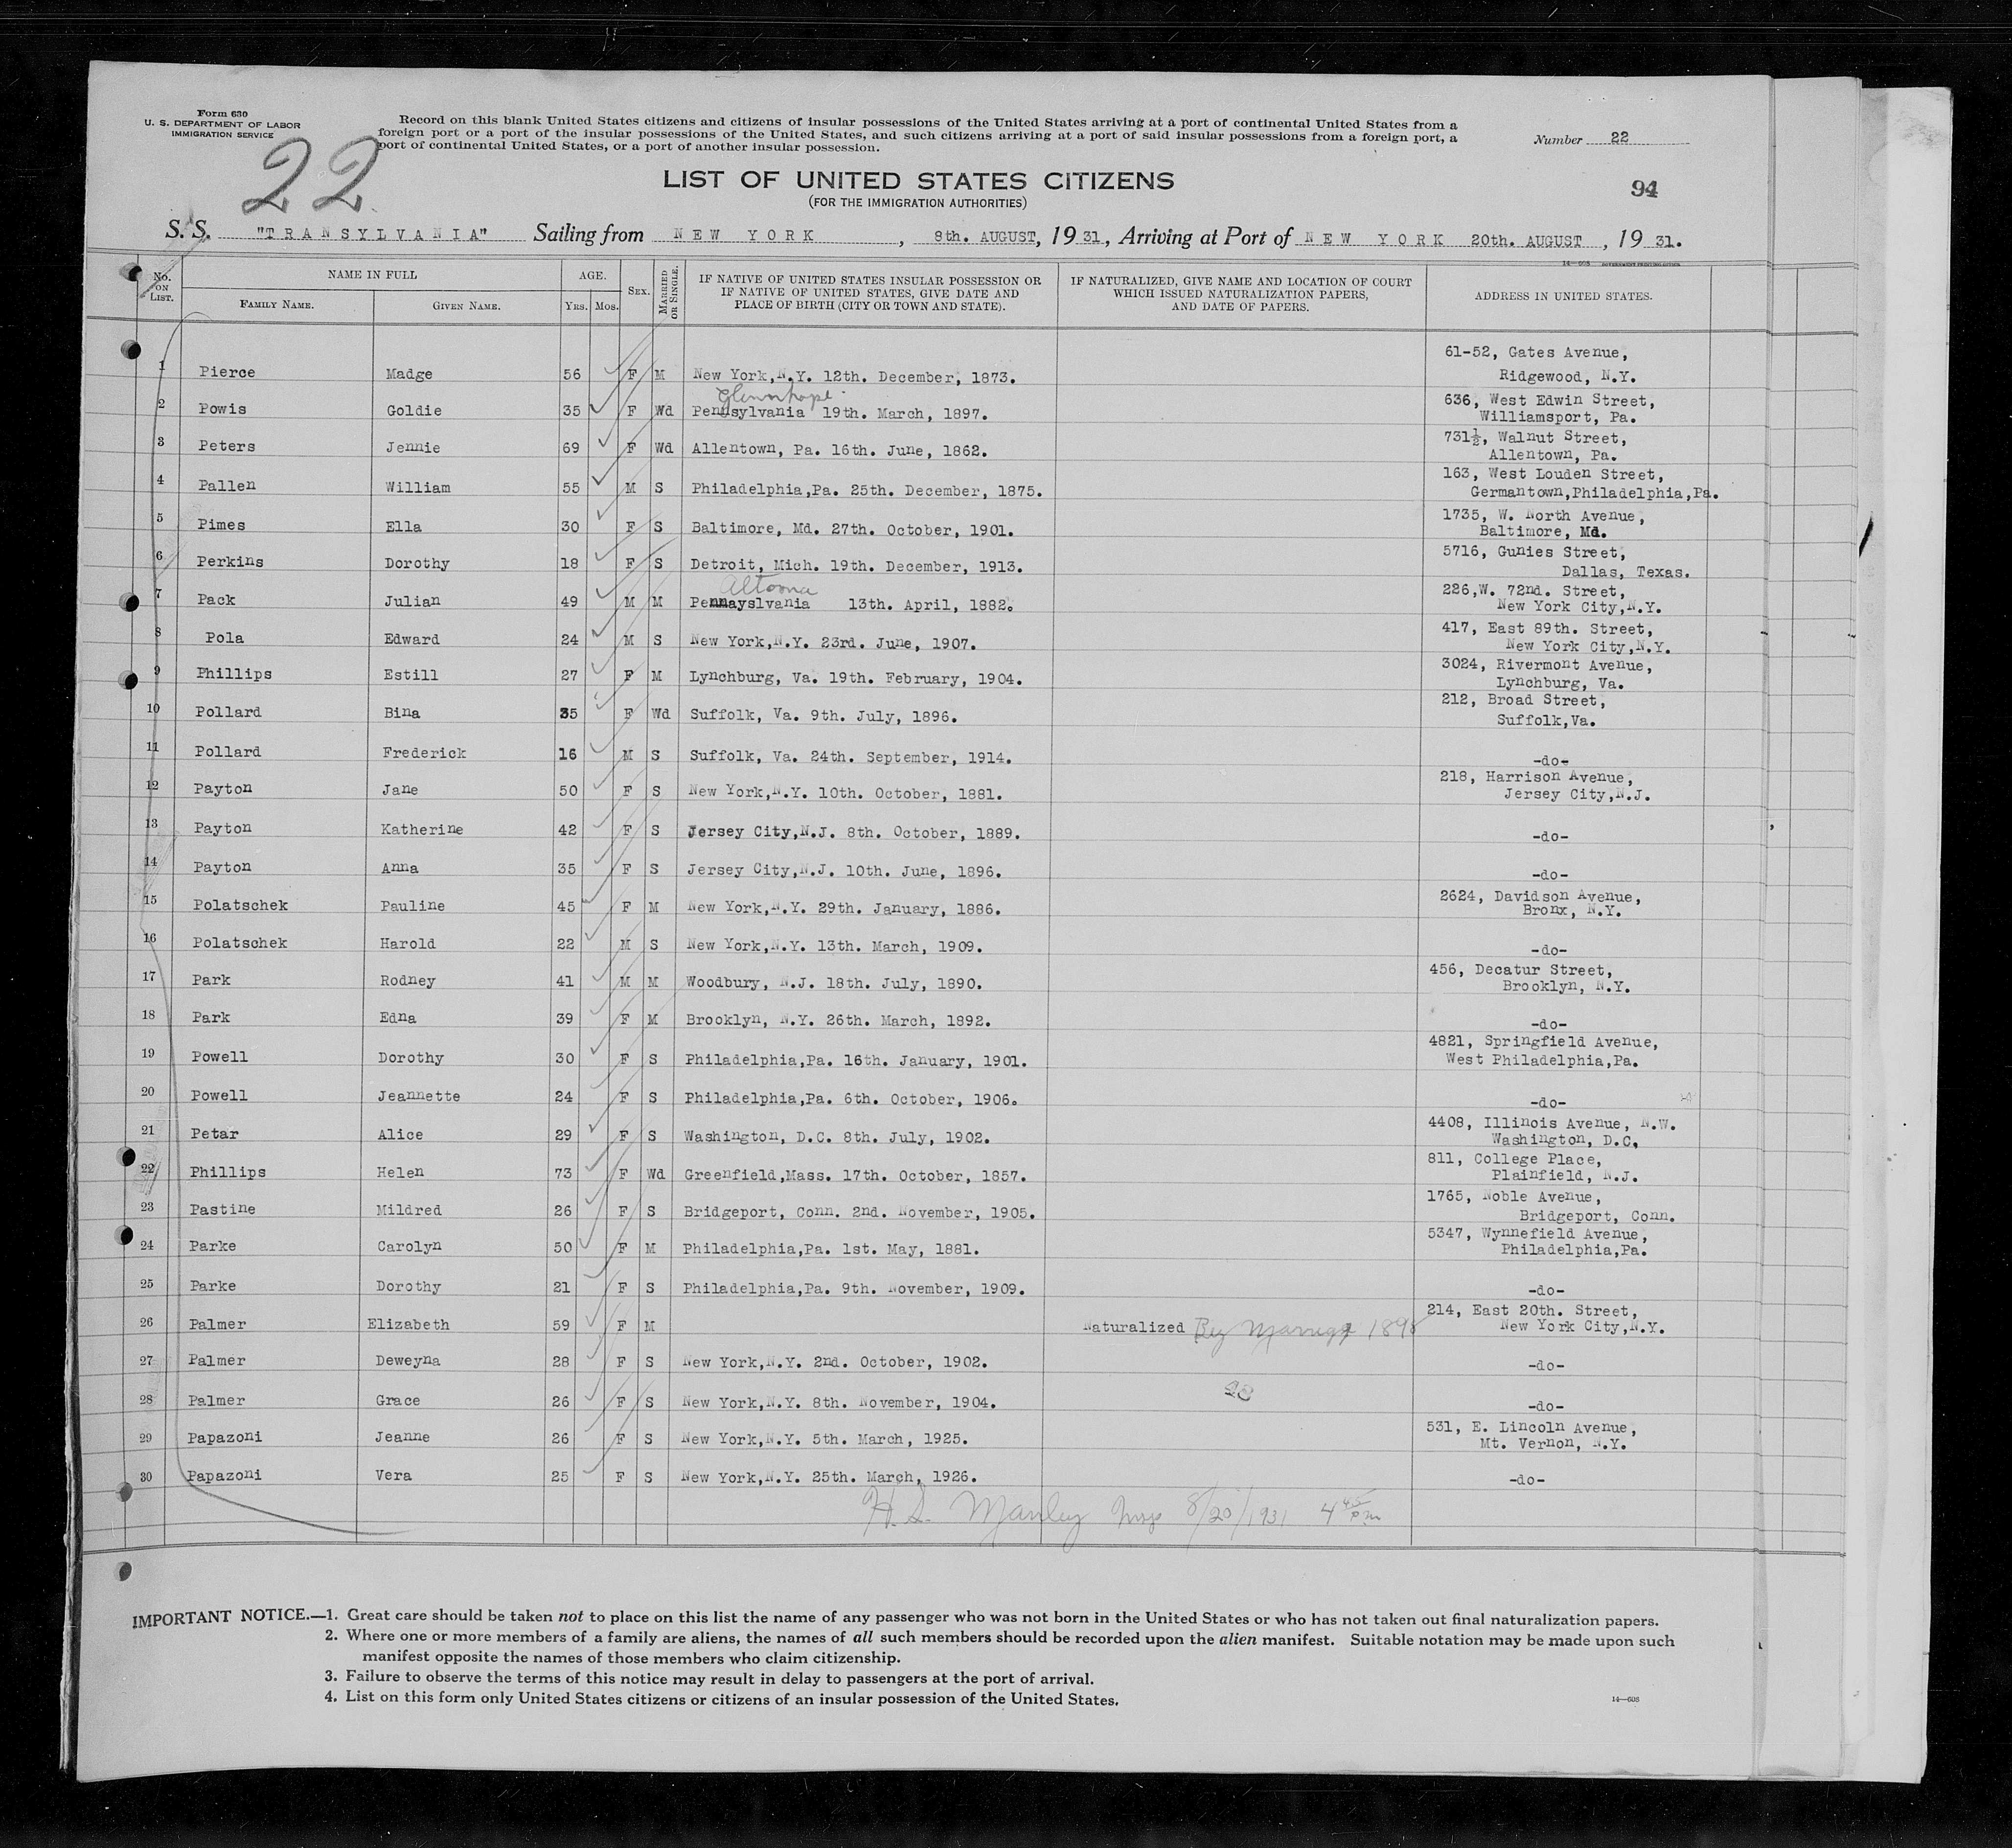 Form 630
U. S. DEPARTMENT OF LABOR
IMMIGRATION SERVICE
22
Record on this blank United States citizens and citizens of insular possessions of the United States arriving at a port of continental United States from a
foreign port or a port of the insular possessions of the United States, and such citizens arriving at a port of said insular possessions from a foreign port, a
port of continental United States, or a port of another insular possession.
Number 22
LIST OF UNITED STATES CITIZENS
(FOR THE IMMIGRATION AUTHORITIES)
94
S. S. "TRANSYLVANIA" Sailing from NEW YORK, 8th. AUGUST, 1931, Arriving at Port of NEW YORK 20th. AUGUST, 1931.
14—608 GOVERNMENT PRINTING OFFICE
No. ON LIST. NAME IN FULL FAMILY NAME. GIVEN NAME. AGE. YRS. MOS. SEX. MARRIED OR SINGLE. IF NATIVE OF UNITED STATES INSULAR POSSESSION OR IF NATIVE OF UNITED STATES, GIVE DATE AND PLACE OF BIRTH (CITY OR TOWN AND STATE). IF NATURALIZED, GIVE NAME AND LOCATION OF COURT WHICH ISSUED NATURALIZATION PAPERS, AND DATE OF PAPERS. ADDRESS IN UNITED STATES.
61-52, Gates Avenue,
1 Pierce Madge 56 F M New York,N.Y. 12th. December, 1873. Ridgewood, N.Y.
Glennhope
636, West Edwin Street,
2 Powis Goldie 35 F Wd Pennsylvania 19th. March, 1897. Williamsport, Pa.
731½, Walnut Street,
3 Peters Jennie 69 F Wd Allentown, Pa. 16th. June, 1862. Allentown, Pa.
163, West Louden Street,
4 Pallen William 55 M S Philadelphia,Pa. 25th. December, 1875. Germantown,Philadelphia,Pa.
1735, W. North Avenue,
5 Pimes Ella 30 F S Baltimore, Md. 27th. October, 1901. Baltimore, Md.
5716, Gunies Street,
6 Perkins Dorothy 18 F S Detroit, Mich. 19th. December, 1913. Dallas, Texas.
Altoona
226,W. 72nd. Street,
7 Pack Julian 49 M M Pennayslvania 13th. April, 1882. New York City,N.Y.
417, East 89th. Street,
8 Pola Edward 24 M S New York,N.Y. 23rd. June, 1907. New York City,N.Y.
3024, Rivermont Avenue,
9 Phillips Estill 27 F M Lynchburg, Va. 19th. February, 1904. Lynchburg, Va.
212, Broad Street,
10 Pollard Bina 35 F Wd Suffolk, Va. 9th. July, 1896. Suffolk,Va.
11 Pollard Frederick 16 M S Suffolk, Va. 24th. September, 1914. -do-
218, Harrison Avenue,
12 Payton Jane 50 F S New York,N.Y. 10th. October, 1881. Jersey City,N.J.
13 Payton Katherine 42 F S Jersey City,N.J. 8th. October, 1889. -do-
14 Payton Anna 35 F S Jersey City,N.J. 10th. June, 1896. -do-
2624, Davidson Avenue,
15 Polatschek Pauline 45 F M New York,N.Y. 29th. January, 1886. Bronx, N.Y.
16 Polatschek Harold 22 M S New York,N.Y. 13th. March, 1909. -do-
456, Decatur Street,
17 Park Rodney 41 M M Woodbury, N.J. 18th. July, 1890. Brooklyn, N.Y.
18 Park Edna 39 F M Brooklyn, N.Y. 26th. March, 1892. -do-
4821, Springfield Avenue,
19 Powell Dorothy 30 F S Philadelphia,Pa. 16th. January, 1901. West Philadelphia,Pa.
20 Powell Jeannette 24 F S Philadelphia,Pa. 6th. October, 1906. -do-
4408, Illinois Avenue, N.W.
21 Petar Alice 29 F S Washington, D.C. 8th. July, 1902. Washington, D.C.
811, College Place,
22 Phillips Helen 73 F Wd Greenfield,Mass. 17th. October, 1857. Plainfield, N.J.
1765, Noble Avenue,
23 Pastine Mildred 26 F S Bridgeport, Conn. 2nd. November, 1905. Bridgeport, Conn.
5347, Wynnefield Avenue,
24 Parke Carolyn 50 F M Philadelphia,Pa. 1st. May, 1881. Philadelphia,Pa.
25 Parke Dorothy 21 F S Philadelphia,Pa. 9th. November, 1909. -do-
214, East 20th. Street,
26 Palmer Elizabeth 59 F M Naturalized By Marriage 1898 New York City,N.Y.
27 Palmer Deweyna 28 F S New York,N.Y. 2nd. October, 1902. -do-
28 Palmer Grace 26 F S New York,N.Y. 8th. November, 1904. -do-
531, E. Lincoln Avenue,
29 Papazoni Jeanne 26 F S New York,N.Y. 5th. March, 1925. Mt. Vernon, N.Y.
30 Papazoni Vera 25 F S New York,N.Y. 25th. March, 1926. -do-
H. S. Manley Insp 8/20/1931 4 45 pm
IMPORTANT NOTICE.—1. Great care should be taken not to place on this list the name of any passenger who was not born in the United States or who has not taken out final naturalization papers.
2. Where one or more members of a family are aliens, the names of all such members should be recorded upon the alien manifest. Suitable notation may be made upon such
manifest opposite the names of those members who claim citizenship.
3. Failure to observe the terms of this notice may result in delay to passengers at the port of arrival.
4. List on this form only United States citizens or citizens of an insular possession of the United States.
14—608